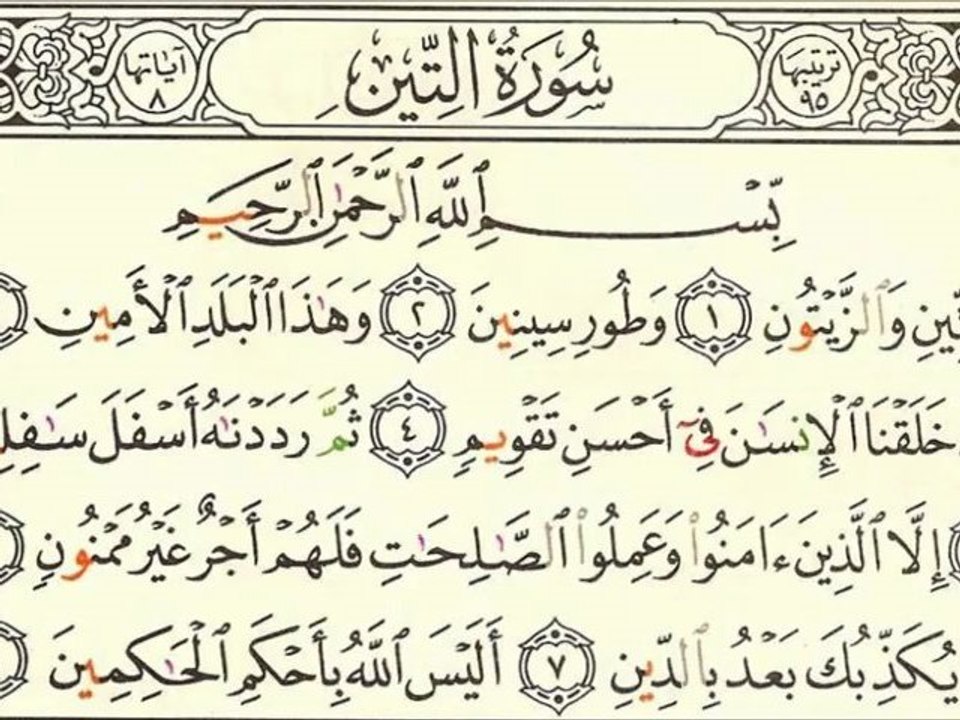 ترتيبها ٩٥ سُورَةُ التِّينِ آياتها ٨
بِّسْمِ ٱللَّهِ ٱلرَّحْمَٰنِ ٱلرَّحِيمِ
وَٱلزَّيْتُونِ ١ وَطُورِ سِينِينَ ٢ وَهَٰذَا ٱلْبَلَدِ ٱلْأَمِينِ
خَلَقْنَا ٱلْإِنسَٰنَ فِىٓ أَحْسَنِ تَقْوِيمٍ ٤ ثُمَّ رَدَدْنَٰهُ أَسْفَلَ
إِلَّا ٱلَّذِينَ ءَامَنُوا۟ وَعَمِلُوا۟ ٱلصَّٰلِحَٰتِ فَلَهُمْ أَجْرٌ غَيْرُ مَمْنُونٍ
يُكَذِّبُكَ بَعْدُ بِٱلدِّينِ ٧ أَلَيْسَ ٱللَّهُ بِأَحْكَمِ ٱلْحَٰكِمِينَ